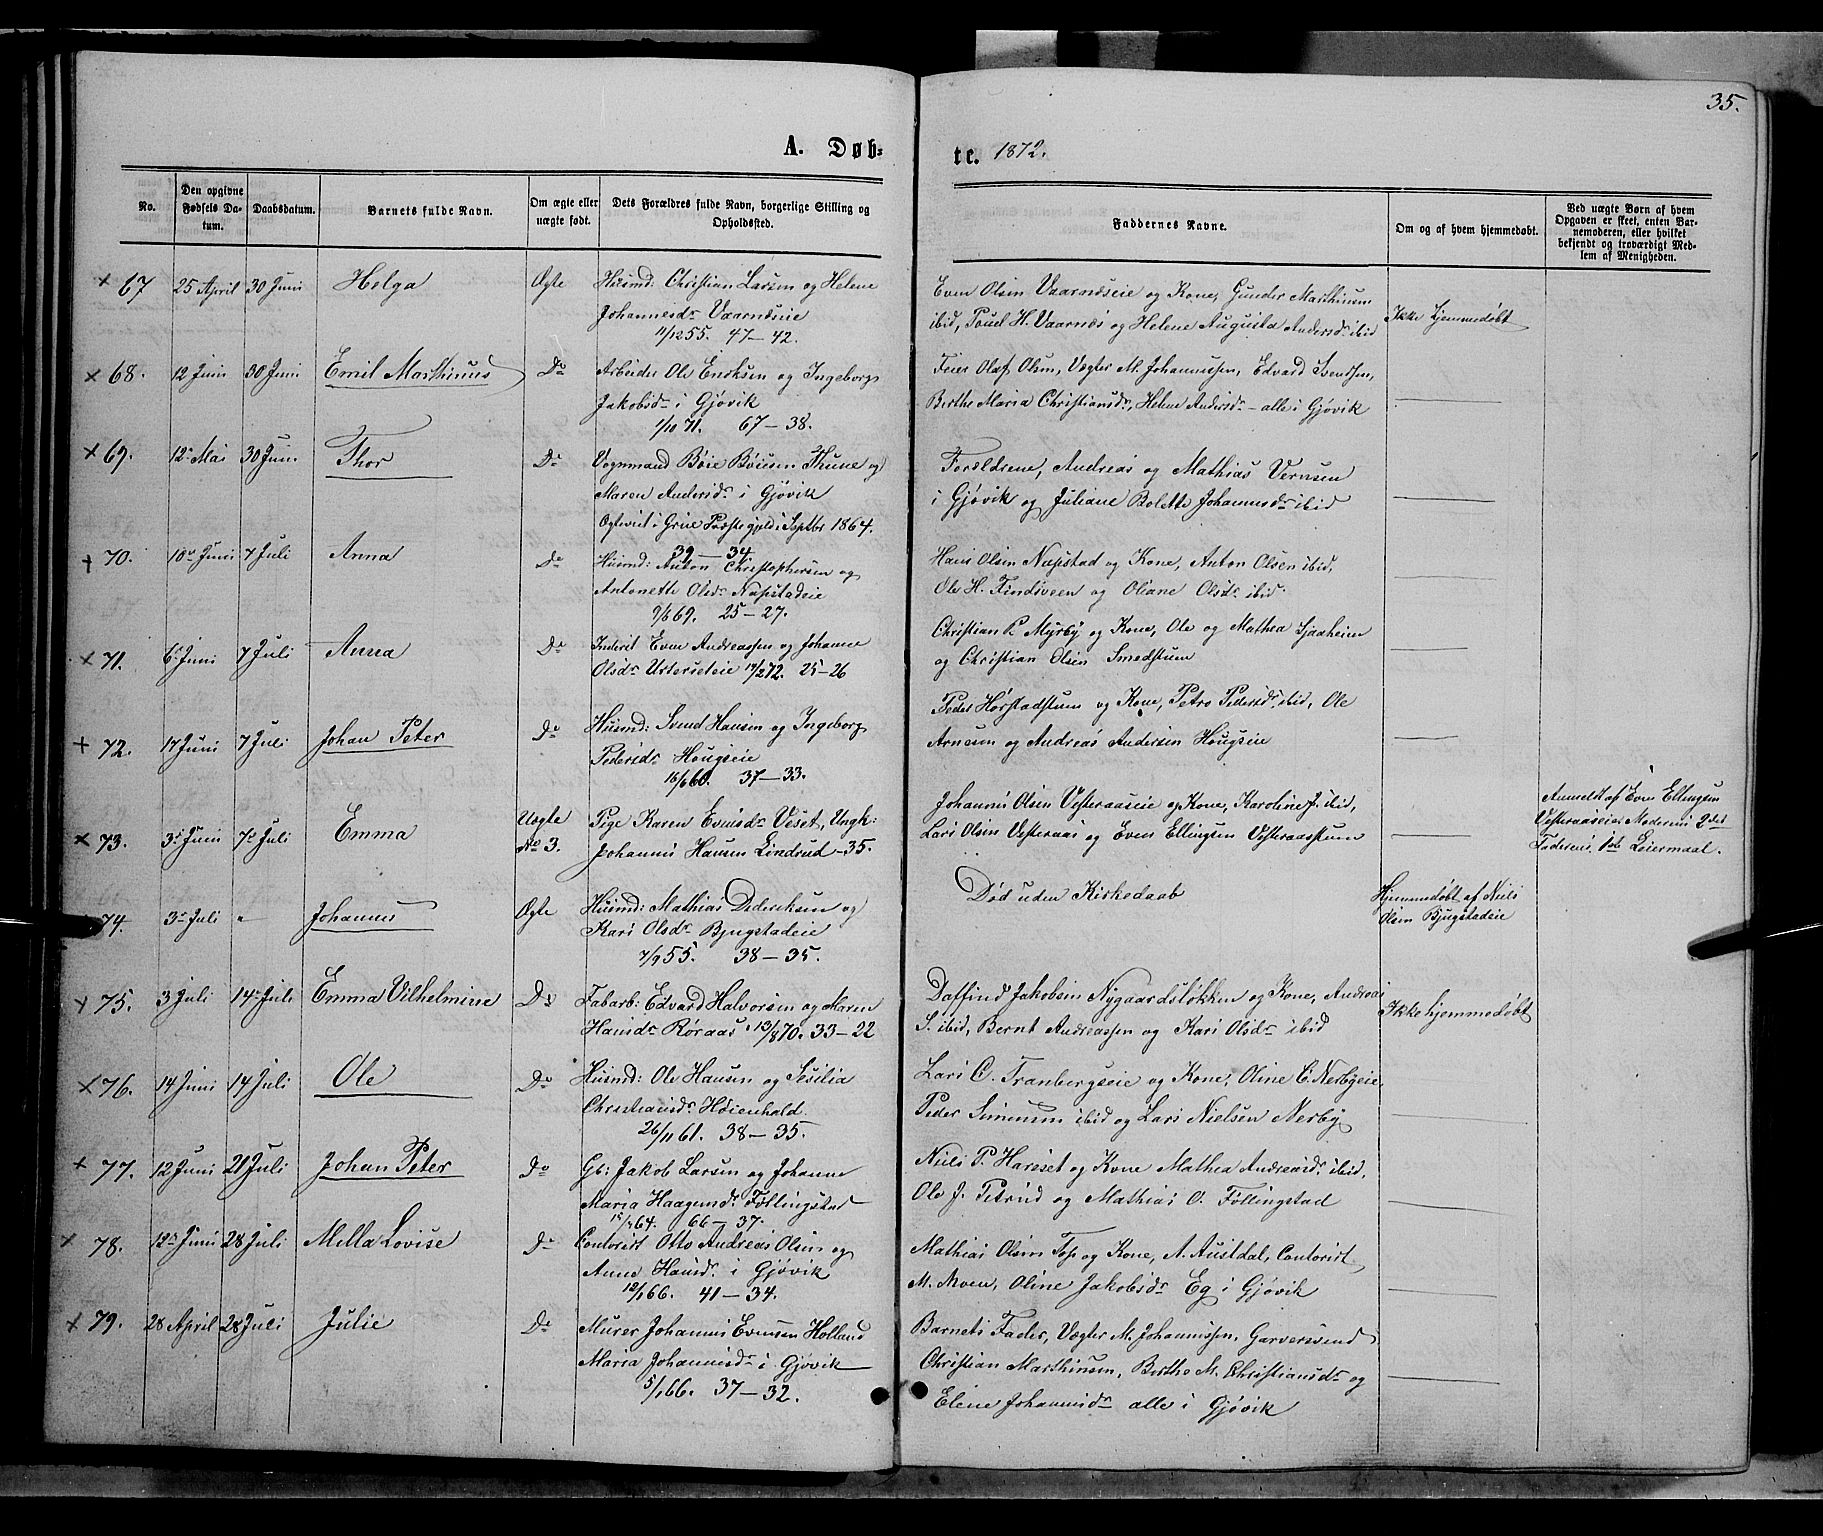 35.
A. Døb-
te. 1872.
No.
Den opgivne
Fødsels Da-
tum.
Daabsdatum.
Barnets fulde Navn.
Om ægte eller
uægte født.
Dets Forældres fulde Navn, borgerlige Stilling og
Opholdssted.
Faddernes Navne.
Om og af hvem hjemmedøbt.
Ved uægte Børn af hvem
Opgaven er skeet, enten Bar-
nemoderen, eller hvilket
bekjendt og troværdigt Med-
lem af Menigheden.
× 67 25 April 30 Juni Helga Ægte
Husmd: Christian Larsen og Helene
Johannesdr Vaarnæseie
11/12 55. 47–42.
Even Olsen Vaarnæseie og Kone, Gunder Marthinsen
ibid, Povel H. Vaarnæs og Helene Augusta Andersdr ibid
Ikke hjemmedøbt
× 68. 12 Juni 30 Juni Emil Marthinus Do
Arbeider Ole Eriksen og Ingeborg
Jakobsdr i Gjøvik
1/10 71. 67–38.
Feier Olaf Olsen, Vægter M. Johannessen, Edvard Svendsen,
Berthe Maria Christiansdr, Helene Andersdr – alle i Gjøvik
× 69. 12te Mai 30 Juni Thor Do
Vognmand Børe Børesen Thune og
Maren Andersdr i Gjøvik
Ægteviet i Grue Præstegjeld i Septbr 1864.
39–34
Forældrene, Andreas og Mathias Vernsen
i Gjøvik og Juliane Bolette Johannesdr ibid
+ 70. 10de Juni 7 Juli Anna Do
Husmd: Anton Christophersen og
Antonette Olsdr Næpstadeie
9/6 69. 25–27.
Hans Olsen Næpstad og Kone, Anton Olsen ibid,
Ole H. Findsveen og Oliane Olsdr ibid.
× 71. 6te Juni 7 Juli Anna Do
Inderst Even Andreassen og Johanne
Olsdr 14/2 72. 25–26
Christian P. Myrby og Kone, Ole og Mathea Sjaaheim
og Christian Olsen Smedstuen
+ 72. 17 Juni 7 Juli Johan Peter Do
Husmd: Svend Hansen og Ingeborg
Pedersdr Hougseie
16/6 60. 37–33.
Peder Hørstadstuen og Kone, Petro Pedersdr ibid, Ole
Arnesen og Andreas Andersen Hougseie
× 73. 3de Juni 7de Juli Emma Uægte
No 3.
Pige Karen Evensdr Veset, Ungk:
Johannes Hansen Lindrud – 35.
Johannes Olsen Vesteraaseie og Kone, Karoline J. ibid,
Lars Olsen Vesteraas og Even Ellingsen Vesteraasstuen
Anmeldt af Even Ellingsen
Vesteraaseie. Moderens 2det
Faderens 1ste Leiermaal.
74. 3de Juli " Johannes Ægte
Husmd: Mathias Dideriksen og
Kari Olsdr Bjugstadeie
7/9 55. 38–35.
Død uden Kirkedaab
Hjemmedøbt af Niels
Olsen Bjugstadeie
+ 75. 3 Juli 14de Juli Emma Vilhelmine Do
Fabarb: Edvard Halvorsen og Maren
Hansdr Røraas 13/8 70. 33–22
Dalfind Jakobsen Nygaardsløkken og Kone, Andreas
S. ibid, Bernt Andreassen og Kari Olsdr ibid
Ikke hjemmedøbt
× 76. 14 Juni 14 Juli Ole Do
Husmd: Ole Hansen og Sesilia
Christiansdr Høienhald
26/11 61. 38–35.
Lars C. Tranbergseie og Kone, Oline E. Nerbyeie,
Peder Simensen ibid og Lars Nielsen Nerby
× 77. 12 Juni 21 Juli Johan Peter Do
Gb: Jakob Larsen og Johanne
Maria Haagensdr Føllingstad
15/7 64. 66–37.
Niels P. Harset og Kone Mathea Andreasdr ibid,
Ole J. Petrud og Mathias O. Føllingstad
× 78. 12te Juni 28 Juli Mella Lovise Do
Contorist Otto Andreas Olsen og
Anne Hansdr i Gjøvik
12/1 66. 41–34.
Mathias Olsen Top og Kone, A. Austdal, Contorist
M. Moen, Oline Jakobsdr Eg i Gjøvik
× 79. 28 April 28 Juli Julie Do
Murer Johannes Evensen Holland
Maria Johannesdr i Gjøvik
5/1 66. 37–32.
Barnets Fader, Vægter M. Johannessen, Garversvend
Christian Marthinsen, Berthe M. Christiansdr og
Elene Johannesdr alle i Gjøvik